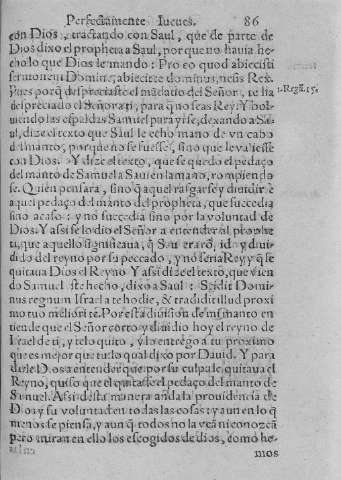 Perfectamente Iueues. 86
con Dios, tractando con Saul, que de parte de
Dios dixo el propheta a Saul, por que no hauia he-
cho lo que Dios le mando: Pro eo quod abiecisti
sermonem Domini, abiecit te dominus, ne sis Rex.
Pues porq̃ despreciaste el mãdatio del Señor, te ha 1. Reg. 15.
despreciado el Señor a ti, para q̃ no seas Rey: Y bol-
uiendo las espaldas Samuel para yrse, dexando a Sa-
ul, dize el texto que Saul le echo mano de vn cabo
del manto, porque no se fuesse, sino que le va iesse
con Dios. Y dize el texto, que se quedo el pedaço
del manto de Samuel a Saul en la mano, rompiendo
se. Quien pensara, sino q̃ aquel rasgarse y diuidirse
aquel pedaço del manto del propheta, que succedia
sino acaso: y no succedia sino por la voluntad de
Dios. Y assi se lo dio el Señor a entender al prophe
ta, que aquello significaua, q̃ Saul era ydo y diui-
dido del reyno por su peccado, y no seria Rey, y q̃ se
quitaua Dios el Reyno Y assi dize el texto, que vien
do Samuel este hecho, dixo a Saul: Scidit Domi-
nus regnum Israel a te hodie, & tradidit illud proxi
mo tuo meliori te. Por esta diuision de mi manto en
tiende que el Señor corto y diuidio hoy el reyno de
Israel de ti, y telo quito, y lo entrego a tu proximo
que es mejor que tu: lo qual dixo por Dauid. Y para
darle Dios a entender que por su culpa le quitaua el
Reyno, quiso que el quitasse el pedaço del manto de
Samuel. Assi desta manera anda la prouidencia de
Dios y su voluntad en todas las cosas: y aun en lo q̃
menos se piensa, y aun q̃ todos no la veã ni conozcã
pero miran en ello los escogidos de dios, como he-
mos